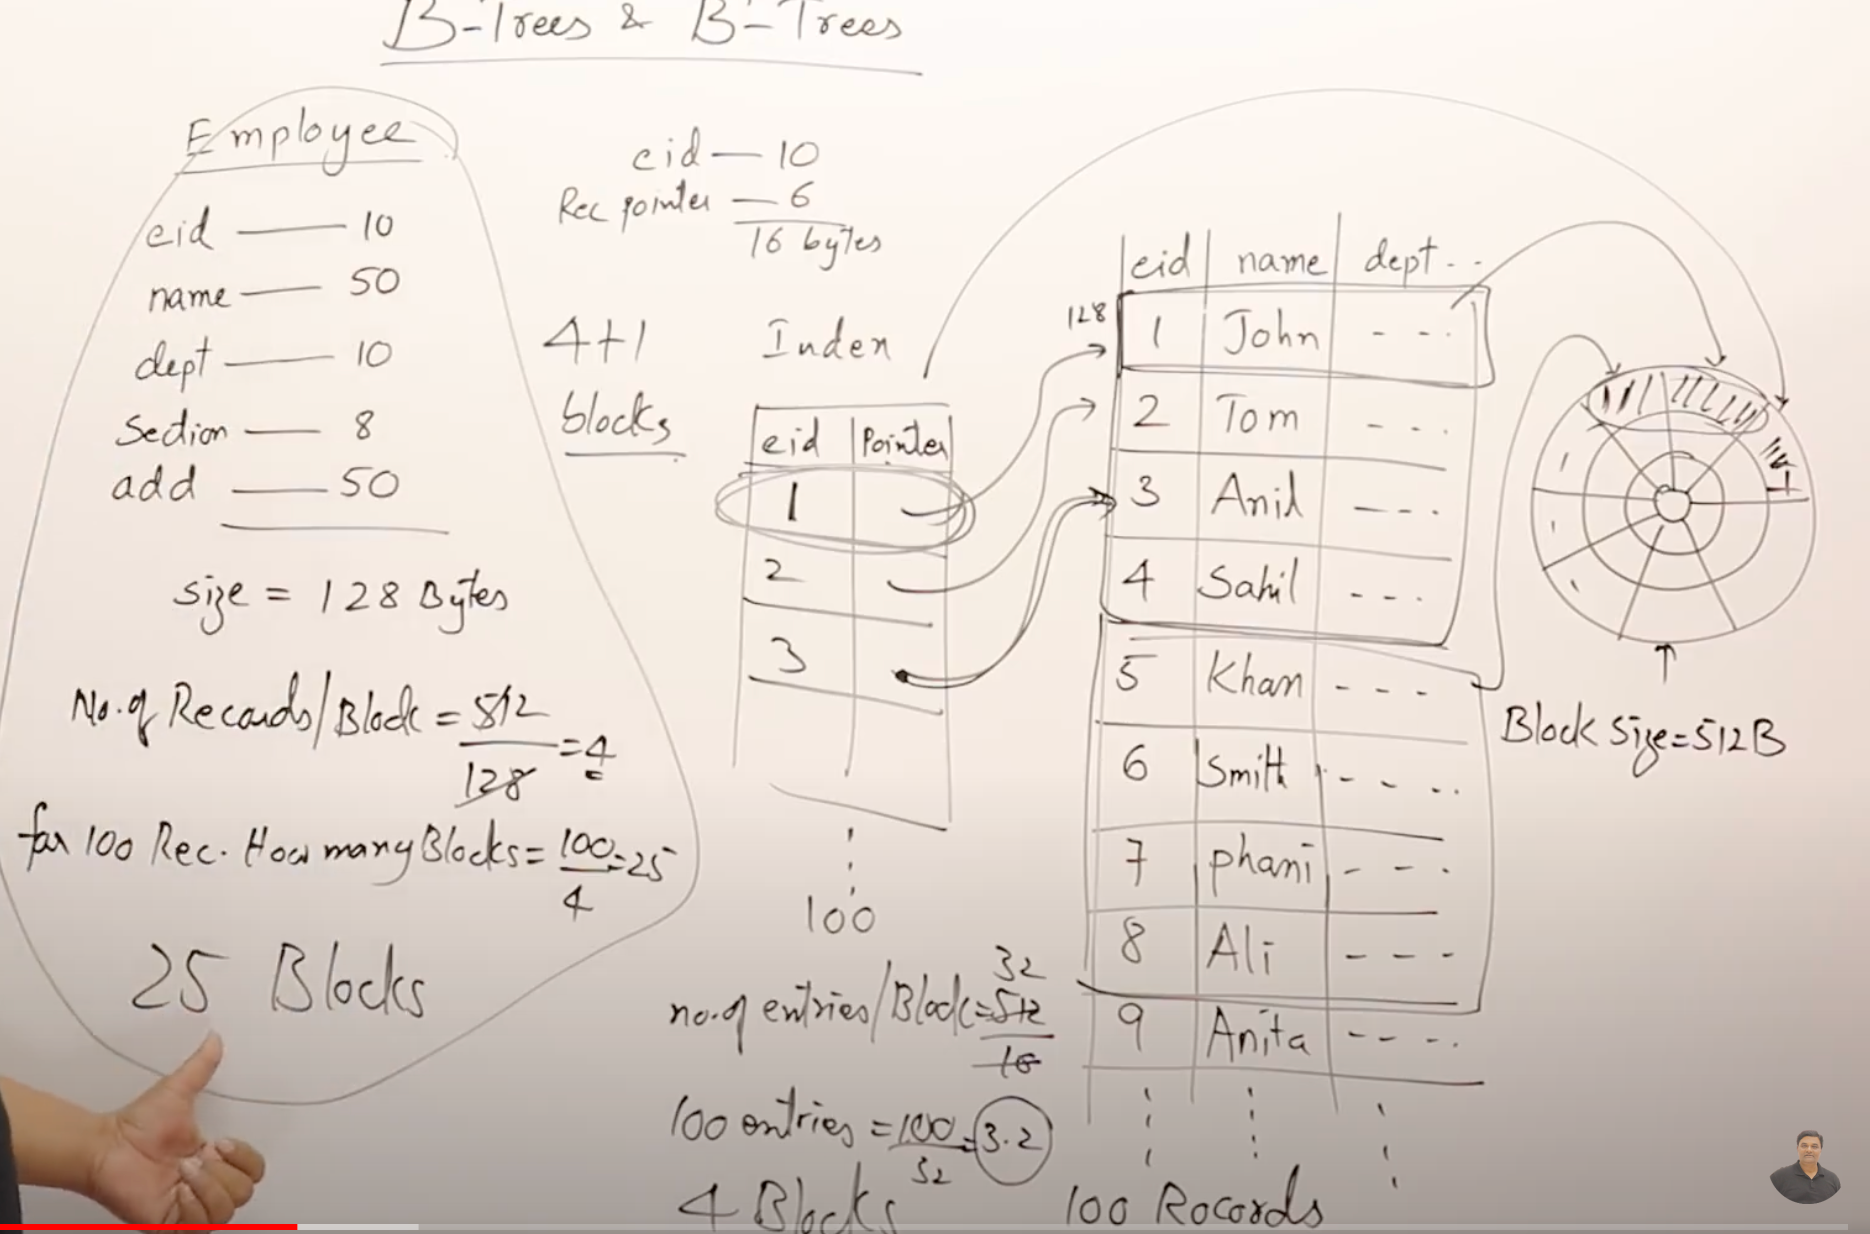 B-Trees & B-Trees
Employee
eid — 10
name — 50
dept — 10
Section — 8
add — 50
size = 128 Bytes
No. of Records/Block = 512
128
= 4
for 100 Rec. How many Blocks = 100
4
= 25
25 Blocks
eid — 10
Rec pointer — 6
16 bytes
4+1
blocks
Index
eid Pointer
1
2
3
100
no. of entries/Block = 512
32
16
100 entries = 100
32
= 3.2
4 Blocks
eid name dept . .
128
1 John - - -
2 Tom - - -
3 Anil - - -
4 Sahil - - -
5 Khan - - -
6 Smith - - - .
7 phani - - -
8 Ali - - -
9 Anita - - - .
100 Rocords
Block Size = 512B